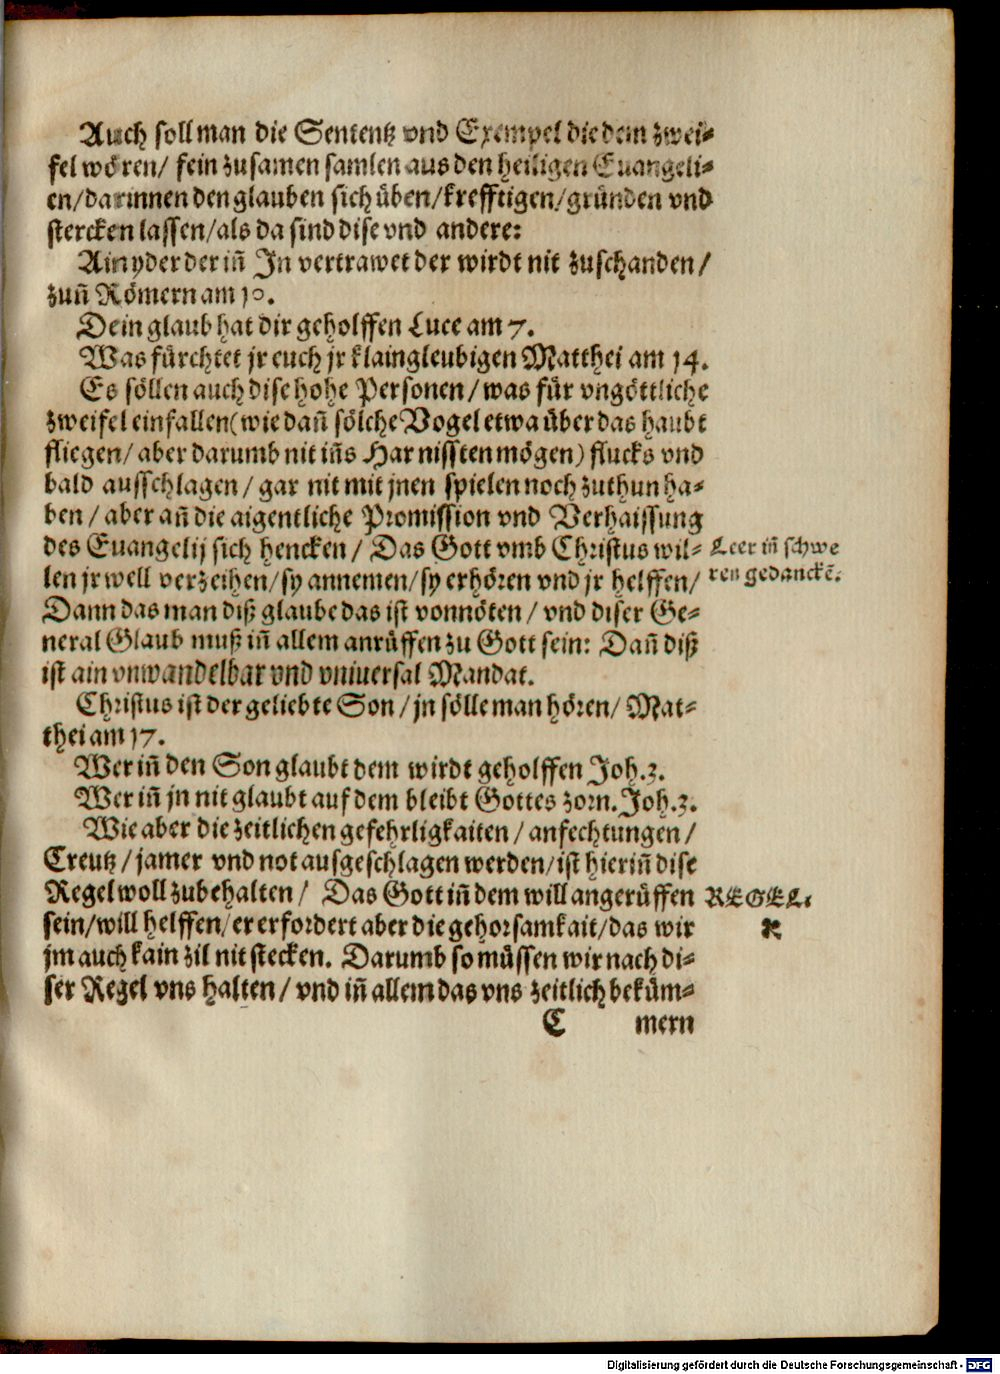 Auch soll man die Sententz vnd Exempel die dem zwei-
fel wören/ fein zusamen samlen aus den heiligen Euangeli-
en/darinnen den glauben sich üben/krefftigen/gründen vnd
stercken lassen/als da sind dise vnd andere:
Ain yder der iñ In vertrawet der wirdt nit zuschanden/
zuñ Römern am 10.
Dein glaub hat dir geholffen Luce am 7.
Was fürchtet jr euch jr klaingleubigen Matthei am 14.
Es söllen auch dise hohe Personen/ was für vngöttliche
zweifel einfallen(wie dañ sölche Vogel etwa über das haubt
fliegen/ aber darumb nit iñs Har nissten mögen) flucks vnd
bald ausschlagen/ gar nit mit jnen spielen noch zuthun ha-
ben/ aber añ die aigentliche Promission vnd Verhaissung
des Euangelij sich hencken/ Das Gott vmb Christus wil-
len jr well verzeihen/sy annemen/sy erhören vnd jr helffen/
Dann das man diß glaube das ist vonnöten/ vnd diser Ge-
neral Glaub muß iñ allem anrüffen zu Gott sein: Dañ diß
ist ain vnwandelbar vnd vniuersal Mandat.
Christus ist der geliebte Son/ jn sölle man hören/ Mat-
thei am 17.
Wer iñ den Son glaubt dem wirdt geholffen Joh.3.
Wer iñ jn nit glaubt auf dem bleibt Gottes zorn. Joh.3.
Wie aber die zeitlichen gefehrligkaiten/ anfechtungen/
Creutz/ jamer vnd not ausgeschlagen werden/ist hieriñ dise
Regel woll zubehalten/ Das Gott iñ dem will angerüffen
sein/will helffen/er erfordert aber die gehorsamkait/das wir
jm auch kain zil nit stecken. Darumb so müssen wir nach di-
ser Regel vns halten/ vnd iñ allem das vns zeitlich beküm-
C mern
Leer iñ schwe
ren gedanckẽ.
REGEL.
Digitalisierung gefördert durch die Deutsche Forschungsgemeinschaft - DFG